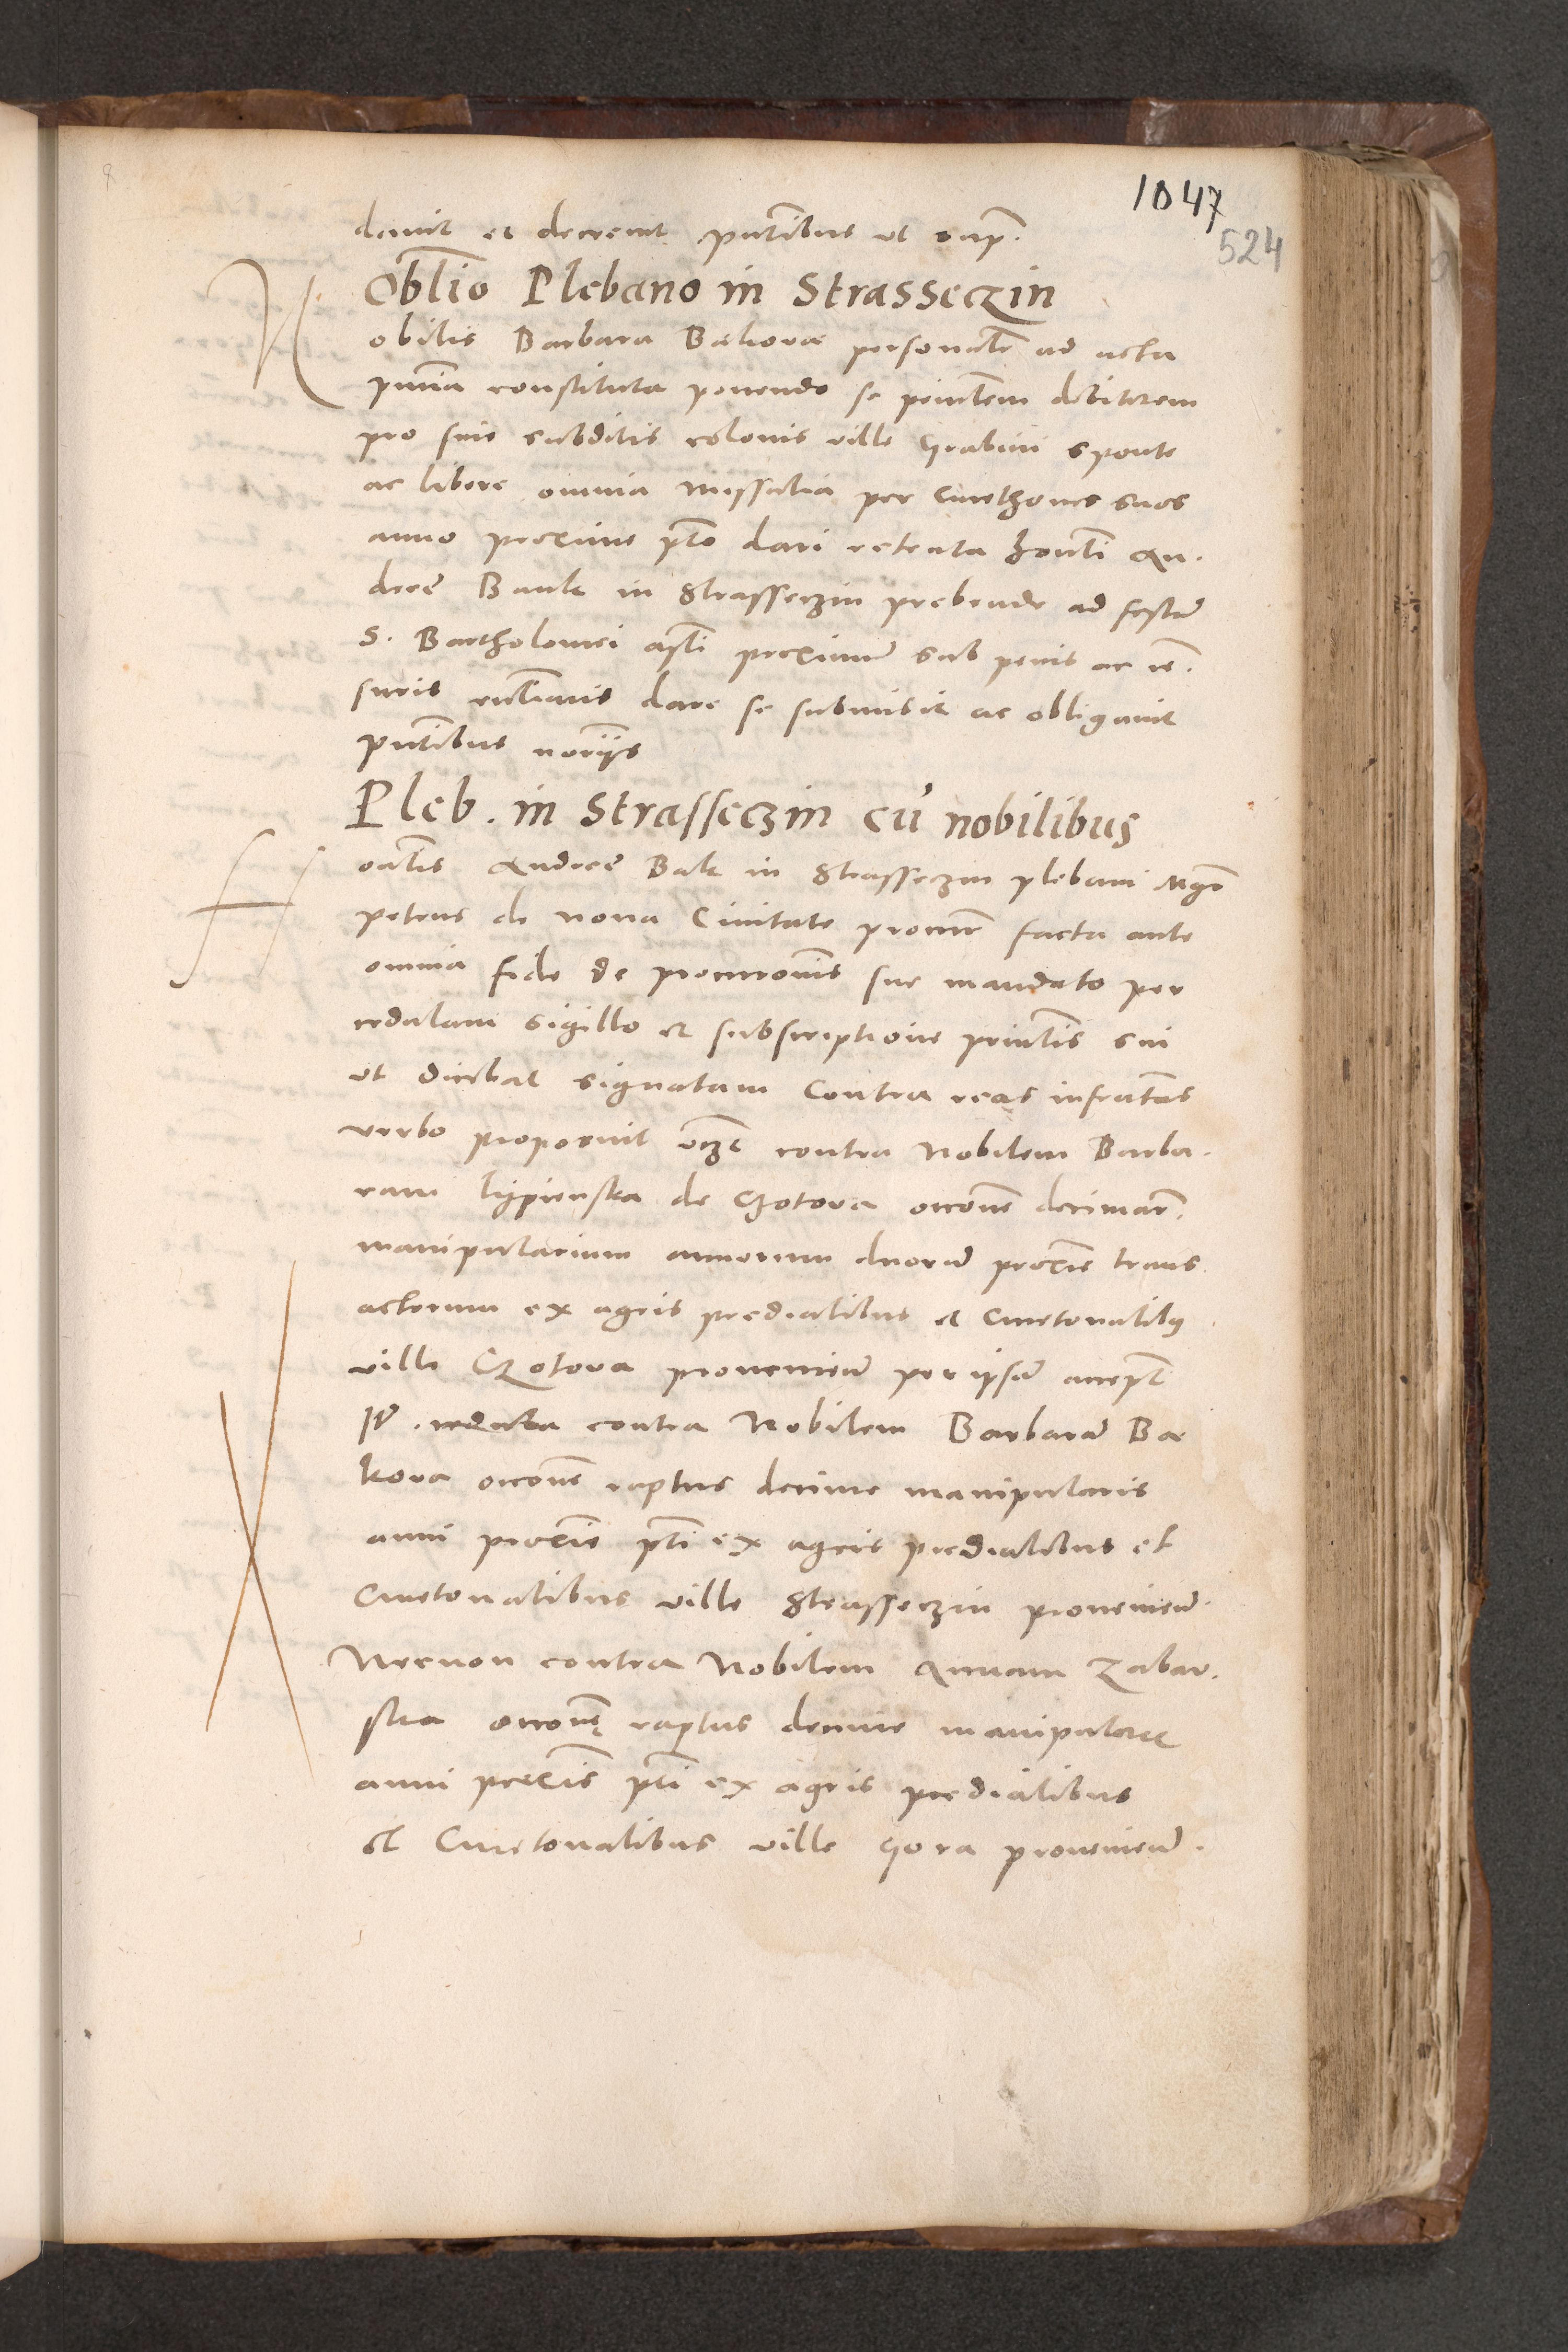 1047
524
davit et decrevit pn̄tibus ut sup.
Obl̄io Plebano in Strasseczin
Nobilis Barbara Bakova personal̄r ad acta
pn̄tia constituta ponendo se prīnclem debitorem
pro suis subditis colonis ville Grabini sponte
ac libere omnia missalia per Cmethones suos
anno proxime pt̄o dari retenta honl̄i An.
dree Bank in Strasseczin prebende ad festū
S. Bartholomei ast̄i proximū sub penis ac cē.
suris eccl̄iaticis dare se submisit ac obligavit
pn̄tibus notr̄iis
Pleb. in Strasseczin cū nobilibus
Honl̄is Andree Bak in Strasseczin plebani Mgr̄
petrus de nova Civitate procur̄ facta ante
omnia fide de procur̄onis sue mandato per
cedulam sigillo et subscriptione princl̄is sui
ut dicebat signatam Contra reas infrat̄as
verbo proposuit vz̄ contra Nobilem Barba.
ram lypienska de Czotova occōne decimar̄.
manipularium annorum duorū proxīe trans
actorum ex agris predialibus et Cmetonalibus
ville Czotova provenieñ per ipsā accept̄
Itē. contra Nobilem Barbarā Ba
kova occōne raptus decime manipularis
anni proxīe pt̄i ex agris predialibus et
Cmetonalibus ville Strasseczin provenieñ.
Necnon contra Nobilem Annam Zabaw.
ska occōne raptus decime manipularis
anni proxīe pt̄i ex agris predialibus
et Cmetonalibus ville Gora provenieñ.